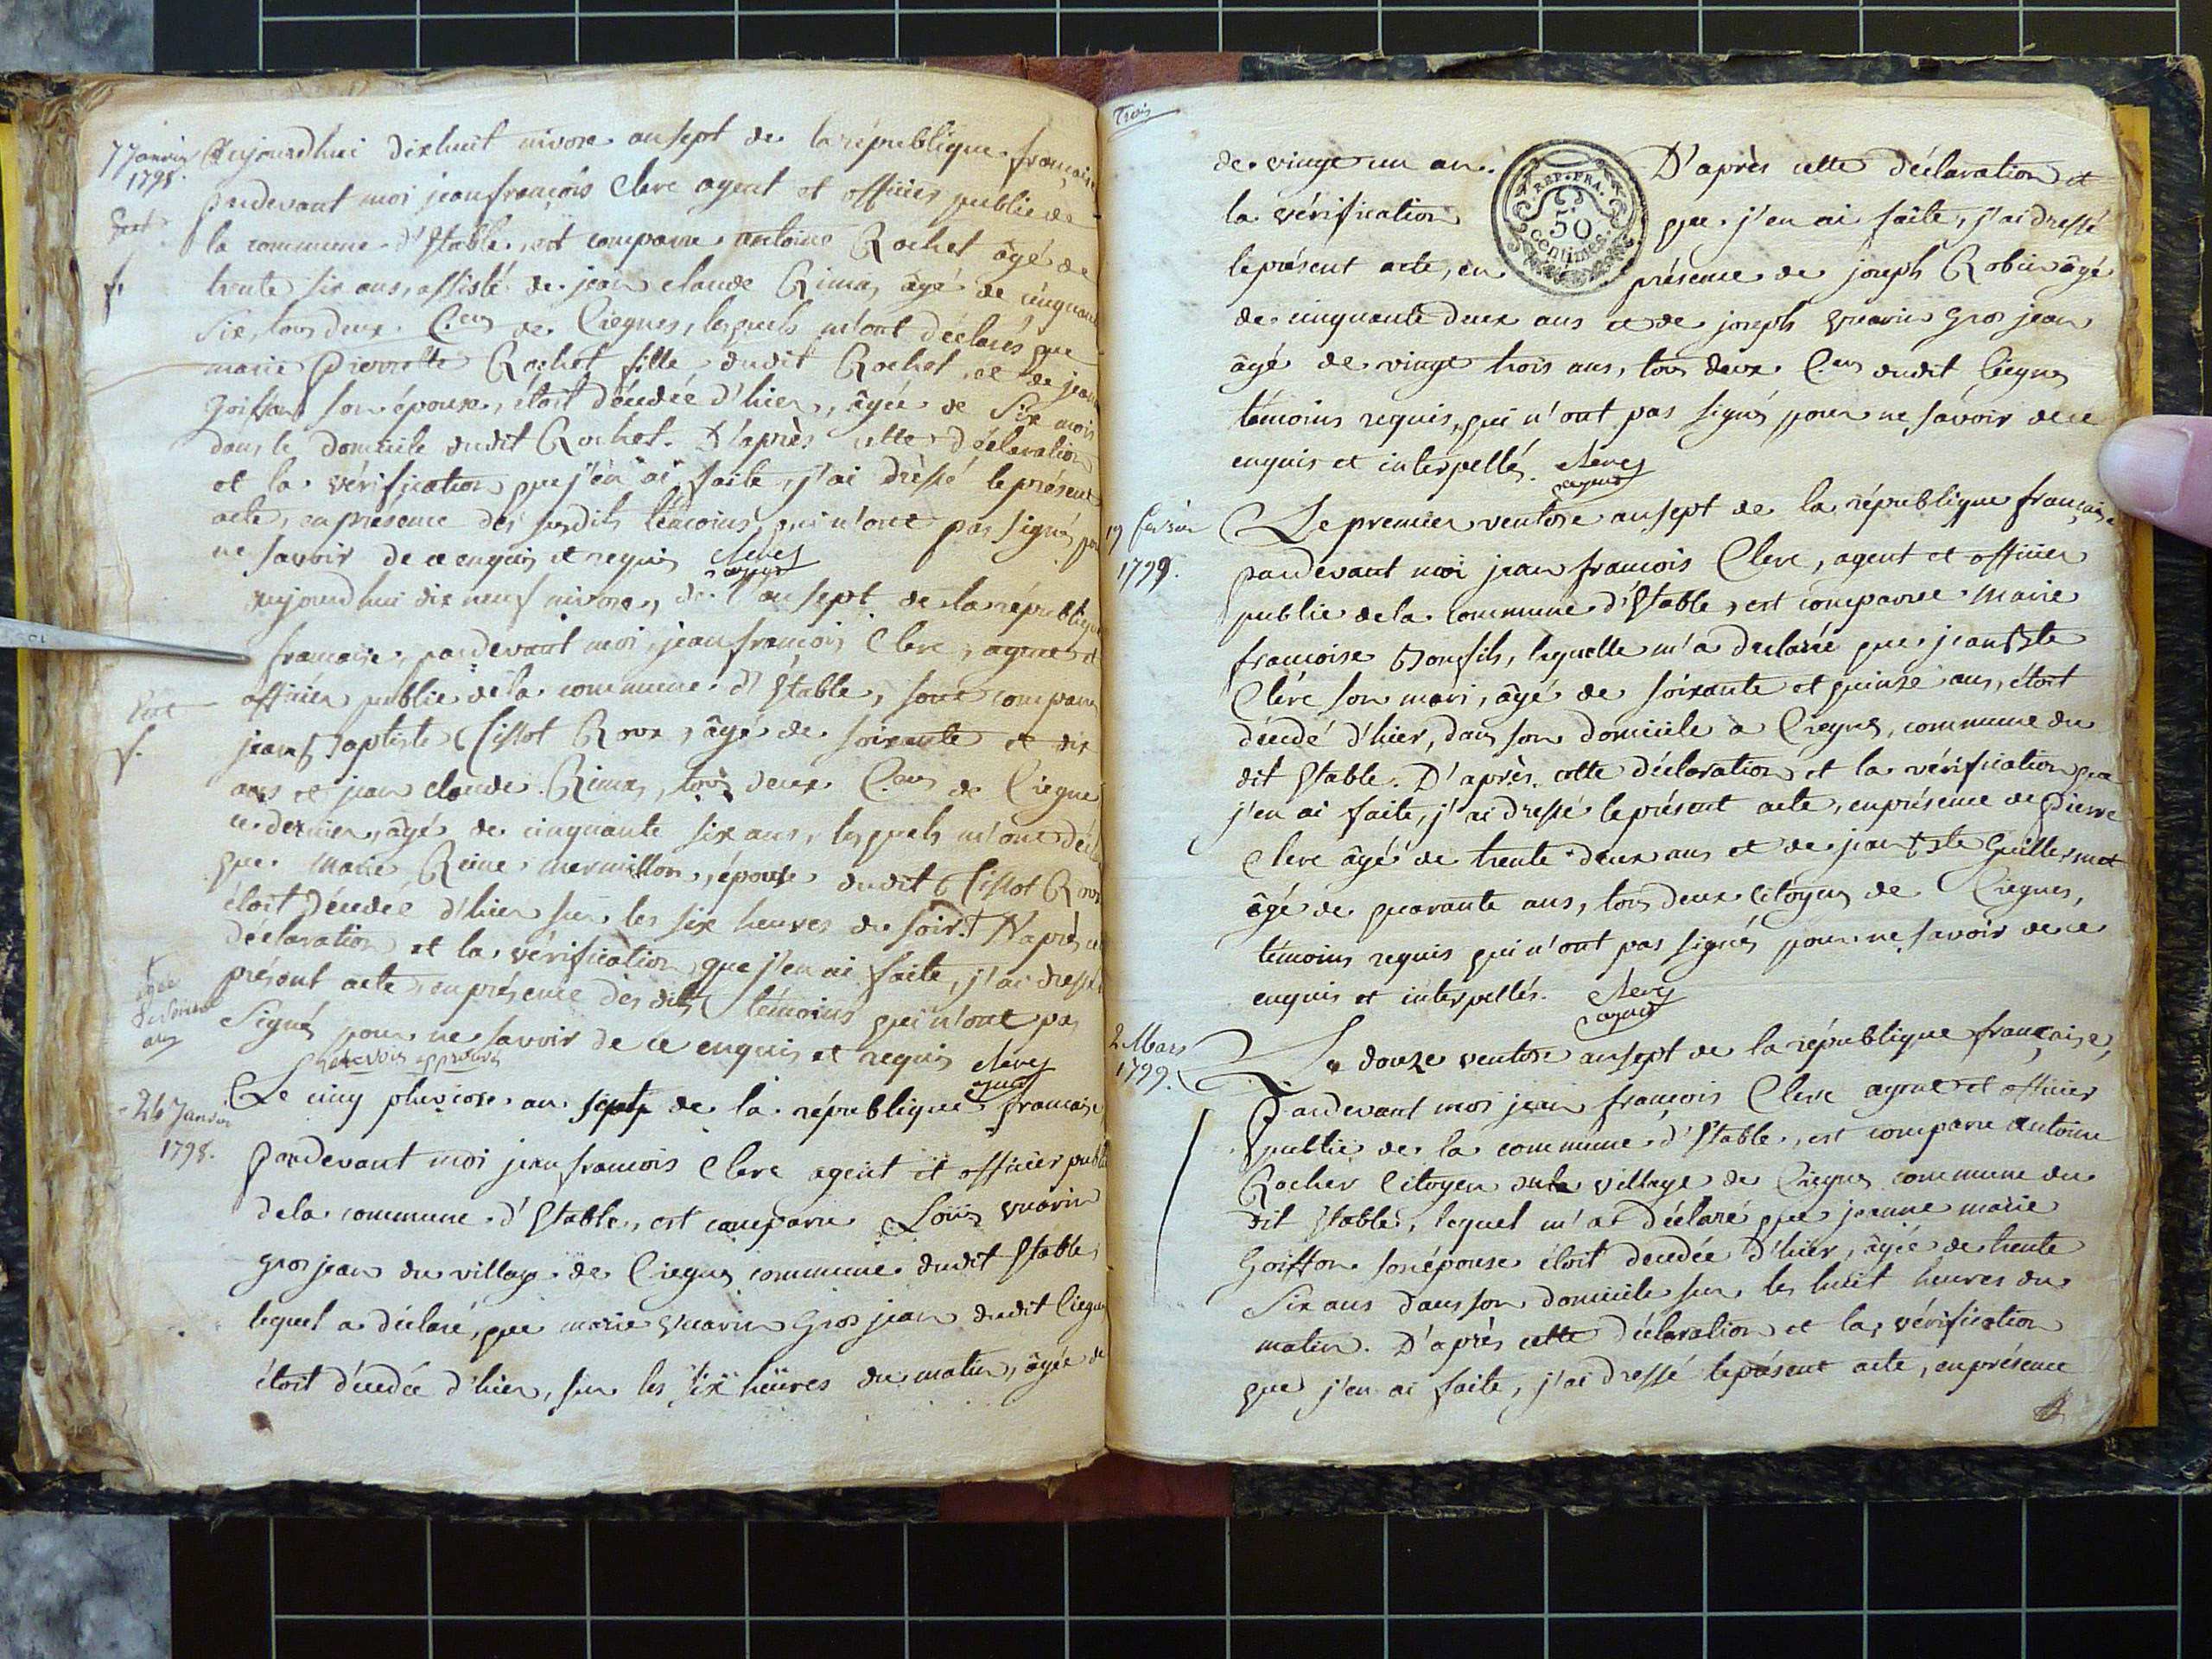 7 Janvier
1798.
Aujourdhui dixhuit nivose an sept de la république français
pardevant moi jean françois Clerc agent et officier public de
la commune d'Etable, est comparu antoine Rochet âgé de
trente six ans, assisté de jean claude Rima, âgé de cinquan
six, tous deux C.ens de Ciegnes, lesquels m'ont déclarés que
marie Pierrette Rochet fille dudit Rochet et de jean
Goiffon son épouse, étoit décédée d'hier, âgée de Six mois
dans le domicile dudit Rochet. D'après cette déclaration
et la vérification que j'en ai faite, j'ai dressé le présent
acte, en présence des susdits témoins, qui n'ont pas signés, po
ne savoir de ce enquis et requis Clerc
agent
aujourd hui dix neuf nivose, de l'an sept de la républiq
francaise, pardevant moi, jean françois Clerc, agent et
officier public de la commune d'Etable, sont comparu
jean Baptiste Cissot Roux, âgé de soixante et dix
ans et jean claude Rima, tous deux C.ens de Ciegne
ce dernier, âgé de cinquante six ans, lesquels m'ont décl
que Marie Reine mermillon, épouse dudit Cissot Roux
étoit décédée d'hier sur les six heures du soir. + D'après ce
déclaration et la vérification, que j'en ai faite, j'ai dressé
présent acte, en présence des dits témoins qui n'ont pas
Signés pour ne savoir de ce enquis et requis Clerc
agent
+
âgée
de soixante
ans
renvois approuvé
24 Janvier
1798.
Le cinq pluviose an sept de la république française
pardevant moi jean francois Clerc agent et officier publ
de la commune d'Etable, est comparu Loüis vuarin
gros jean du village de Ciegnes commune dudit Etable,
lequel a déclaré, que marie vuarin Gros jean dudit Ciegnes
étoit décédée d'hier, sur les six heures du matin, âgée de
Trois
REP. FRA.
50
centimes.
de vingt un an. D'après cette déclaration et
la vérification que j'en ai faite, j'ai dressé
le présent acte, en présence de joseph Robin âgé
de cinquante deux ans et de joseph vuarin Gros jean
âgé de vingt trois ans, tous deux C.ens dudit Ciegnes
témoins requis, qui n'ont pas signés pour ne savoir de ce
enquis et interpellés. Clerc
agent
19 fevrier
1799.
Le premier ventose an sept de la république français
pardevant moi jean francois Clerc, agent et officier
public de la commune d'Etable, est comparue Marie
francoise Bonfils, laquelle m'a declarée que jean Bte
Clerc son mari, âgé de soixante et quinze ans, étoit
décédé d'hier, dans son domicile à Ciegnes, commune du
dit Etable. D'après cette déclaration et la vérification que
j'en ai faite, j'ai dressé le présent acte, en présence de Pierre
Clerc âgé de trente deux ans et de jean Bte Guillermet
âgé de quarante ans, tous deux Citoyens de Ciegnes,
témoins requis qui n'ont pas signés pour ne savoir de ce
enquis et interpellés. Clerc
agent
2 Mars
1799.
Le douze ventose an sept de la république française,
Pardevant moi jean françois Clerc agent et officier
public de la commune d'Etable, est comparu antoine
Rochet Citoyen du village de Ciegnes commune du
dit Etable, lequel m'a déclaré que jeanne marie
Goiffon son épouse étoit decedée d'hier, âgée de trente
Six ans dans son domicile sur les huit heures du
matin. D'après cette déclaration et la vérification
que j'en ai faite, j'ai dressé le présent acte, en présence